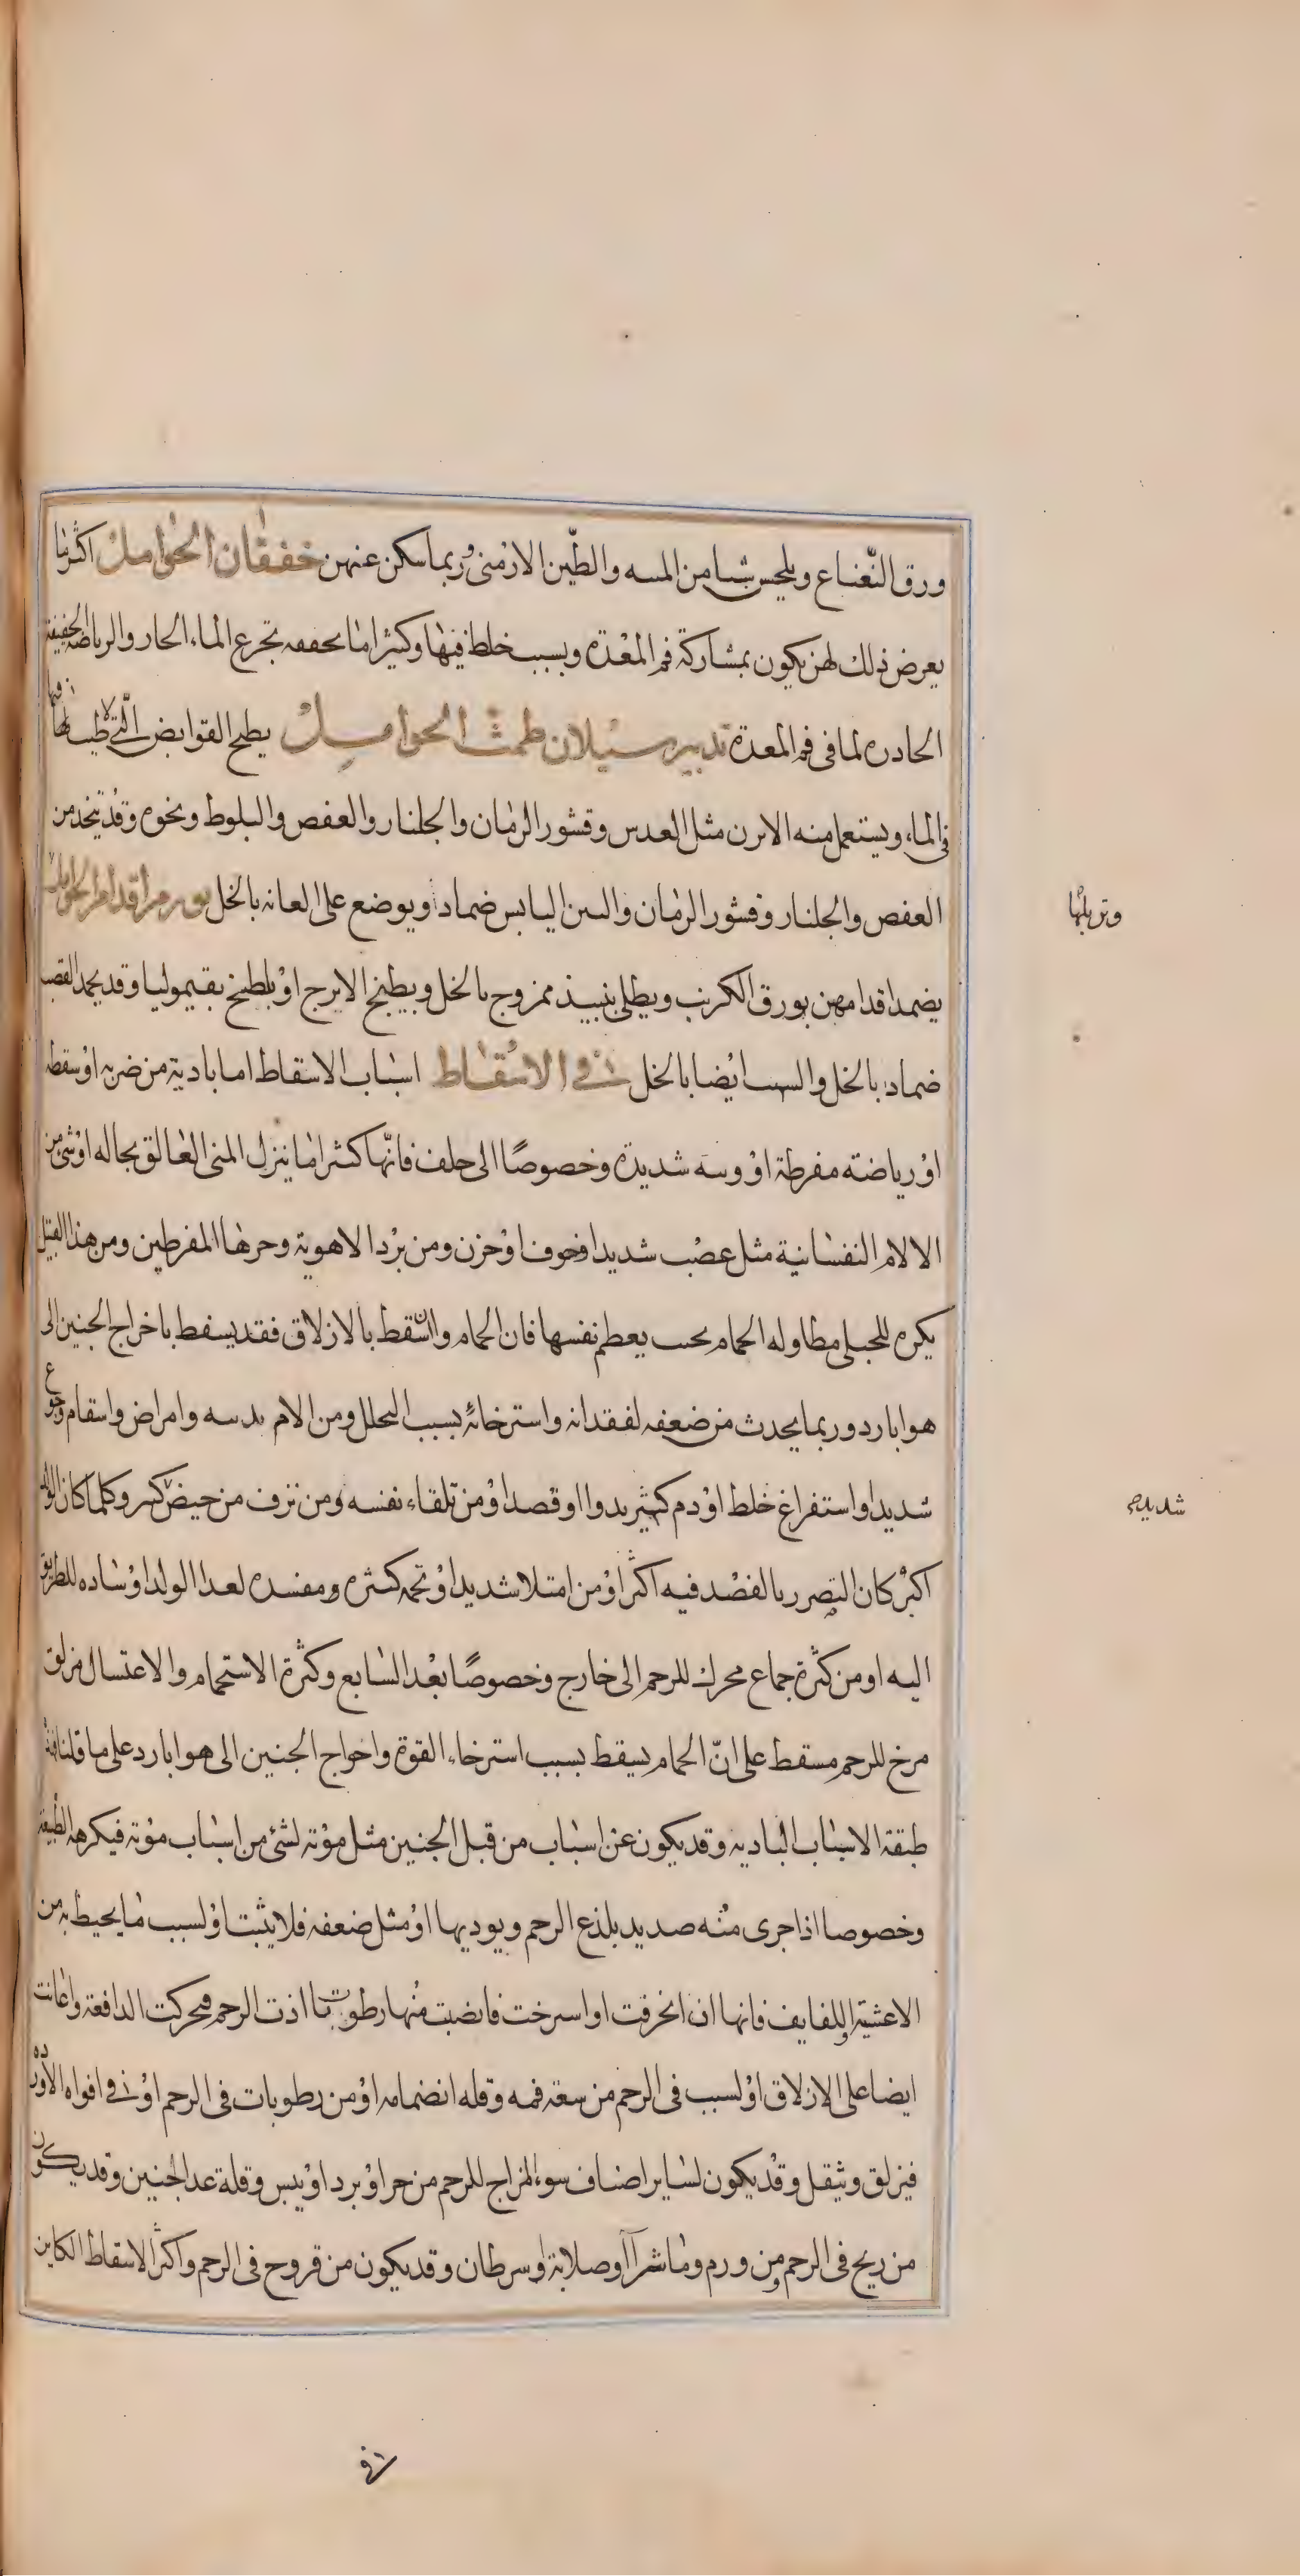 ورق النّعناع ويلحس شيا من الميبه والطّين الارمنى وربما سكن عنهن خفقان الحوامل اكثر ما
يعرض ذلك لهن يكون بمشاركة فم المعدة وبسبب خلط فيها وكثيرا ما يخففه تجرع الماء الحار والرياضه الخفيفة
الحادره لما فى فم المعدة تدبير سيلان طمث الحوامل يطبخ القوابض الّتى لا طيب لها فيها
فى الماء ويستعمل منه الابزن مثل العدس وقشور الرمان والجلنار والعفص والبلوط ونحوه وقد يتخذ من
العفص والجلنار وقشور الرمان والتين اليابس ضمادا ويوضع على العانه بالخل تورم اقدام الحوامل
وتربلها
يضمد اقدامهن بورق الكرنب ويطلى بنبيذ ممزوج بالخل وبطبيخ الاترج او يلطخ بقيموليا وقد يحمد القصب
ضمادا بالخل والشب ايضا بالخل فى الاسقاط اسباب الاسقاط اما بادية من ضربه او سقطه
او رياضته مفرطة او وثبه شديدة وخصوصًا الى خلف فانّها كثيرا ما ينزل المنى العالق بحاله او شئ من
الالام النفسانية مثل غضب شديد او خوف او حزن ومن برد الاهوية وحرها المفرطين ومن هذا القبيل
يكره للحبلى مطاوله الحمام بحيث يعظم نفسها فان الحمام وان اسقط بالازلاق فقد يسقط باخراج الجنين الى
هوا بارد وربما يحدث من ضعفه لفقدانه واسترخائه بسبب التحلل ومن الام بدنيه وامراض واسقام وجوع
شديد او استفراغ خلط او دم كثير بدوا او فصد او من تلقاء نفسه ومن نزف من حيض كثير وكلما كان الولد
شديده
اكبر كان التضرر بالفصد فيه اكثر او من امتلا شديد او تخمه كثيره ومفسده لغذا الولد او ساده للطريق
اليه او من كثرة جماع محرك للرحم الى خارج وخصوصًا بعد السابع وكثرة الاستحمام والاغتسال مزلق
مرخ للرحم مسقط على انّ الحمام يسقط بسبب استرخاء القوة واخراج الجنين الى هوا بارد على ما قلنا فهذه
طبقة الاسباب البادية وقد يكون عن اسباب من قبل الجنين مثل موته لشئ من اسباب موته فيكرهه الطبيعة
وخصوصا اذا جرى منه صديد يلذع الرحم ويوديها او مثل ضعفه فلا يثبت او لسبب ما يحيط به من
الاغشية واللفايف فانها ان انخرقت او استرخت فانصبت منها رطوبات اذت الرحم فتحركت الدافعة واعانت
ايضا على الازلاق او لسبب فى الرحم من سعة فمه وقله انضمامه او من رطوبات فى الرحم او فى افواه الاورده
فيزلق ويثقل وقد يكون لساير اصناف سوء المزاج للرحم من حر او برد او يبس وقلة غذا الجنين وقد يكون
من ريح فى الرحم ومن ورم وماشرا او صلابة او سرطان وقد يكون من قروح فى الرحم واكثر الاسقاط الكاين
فى